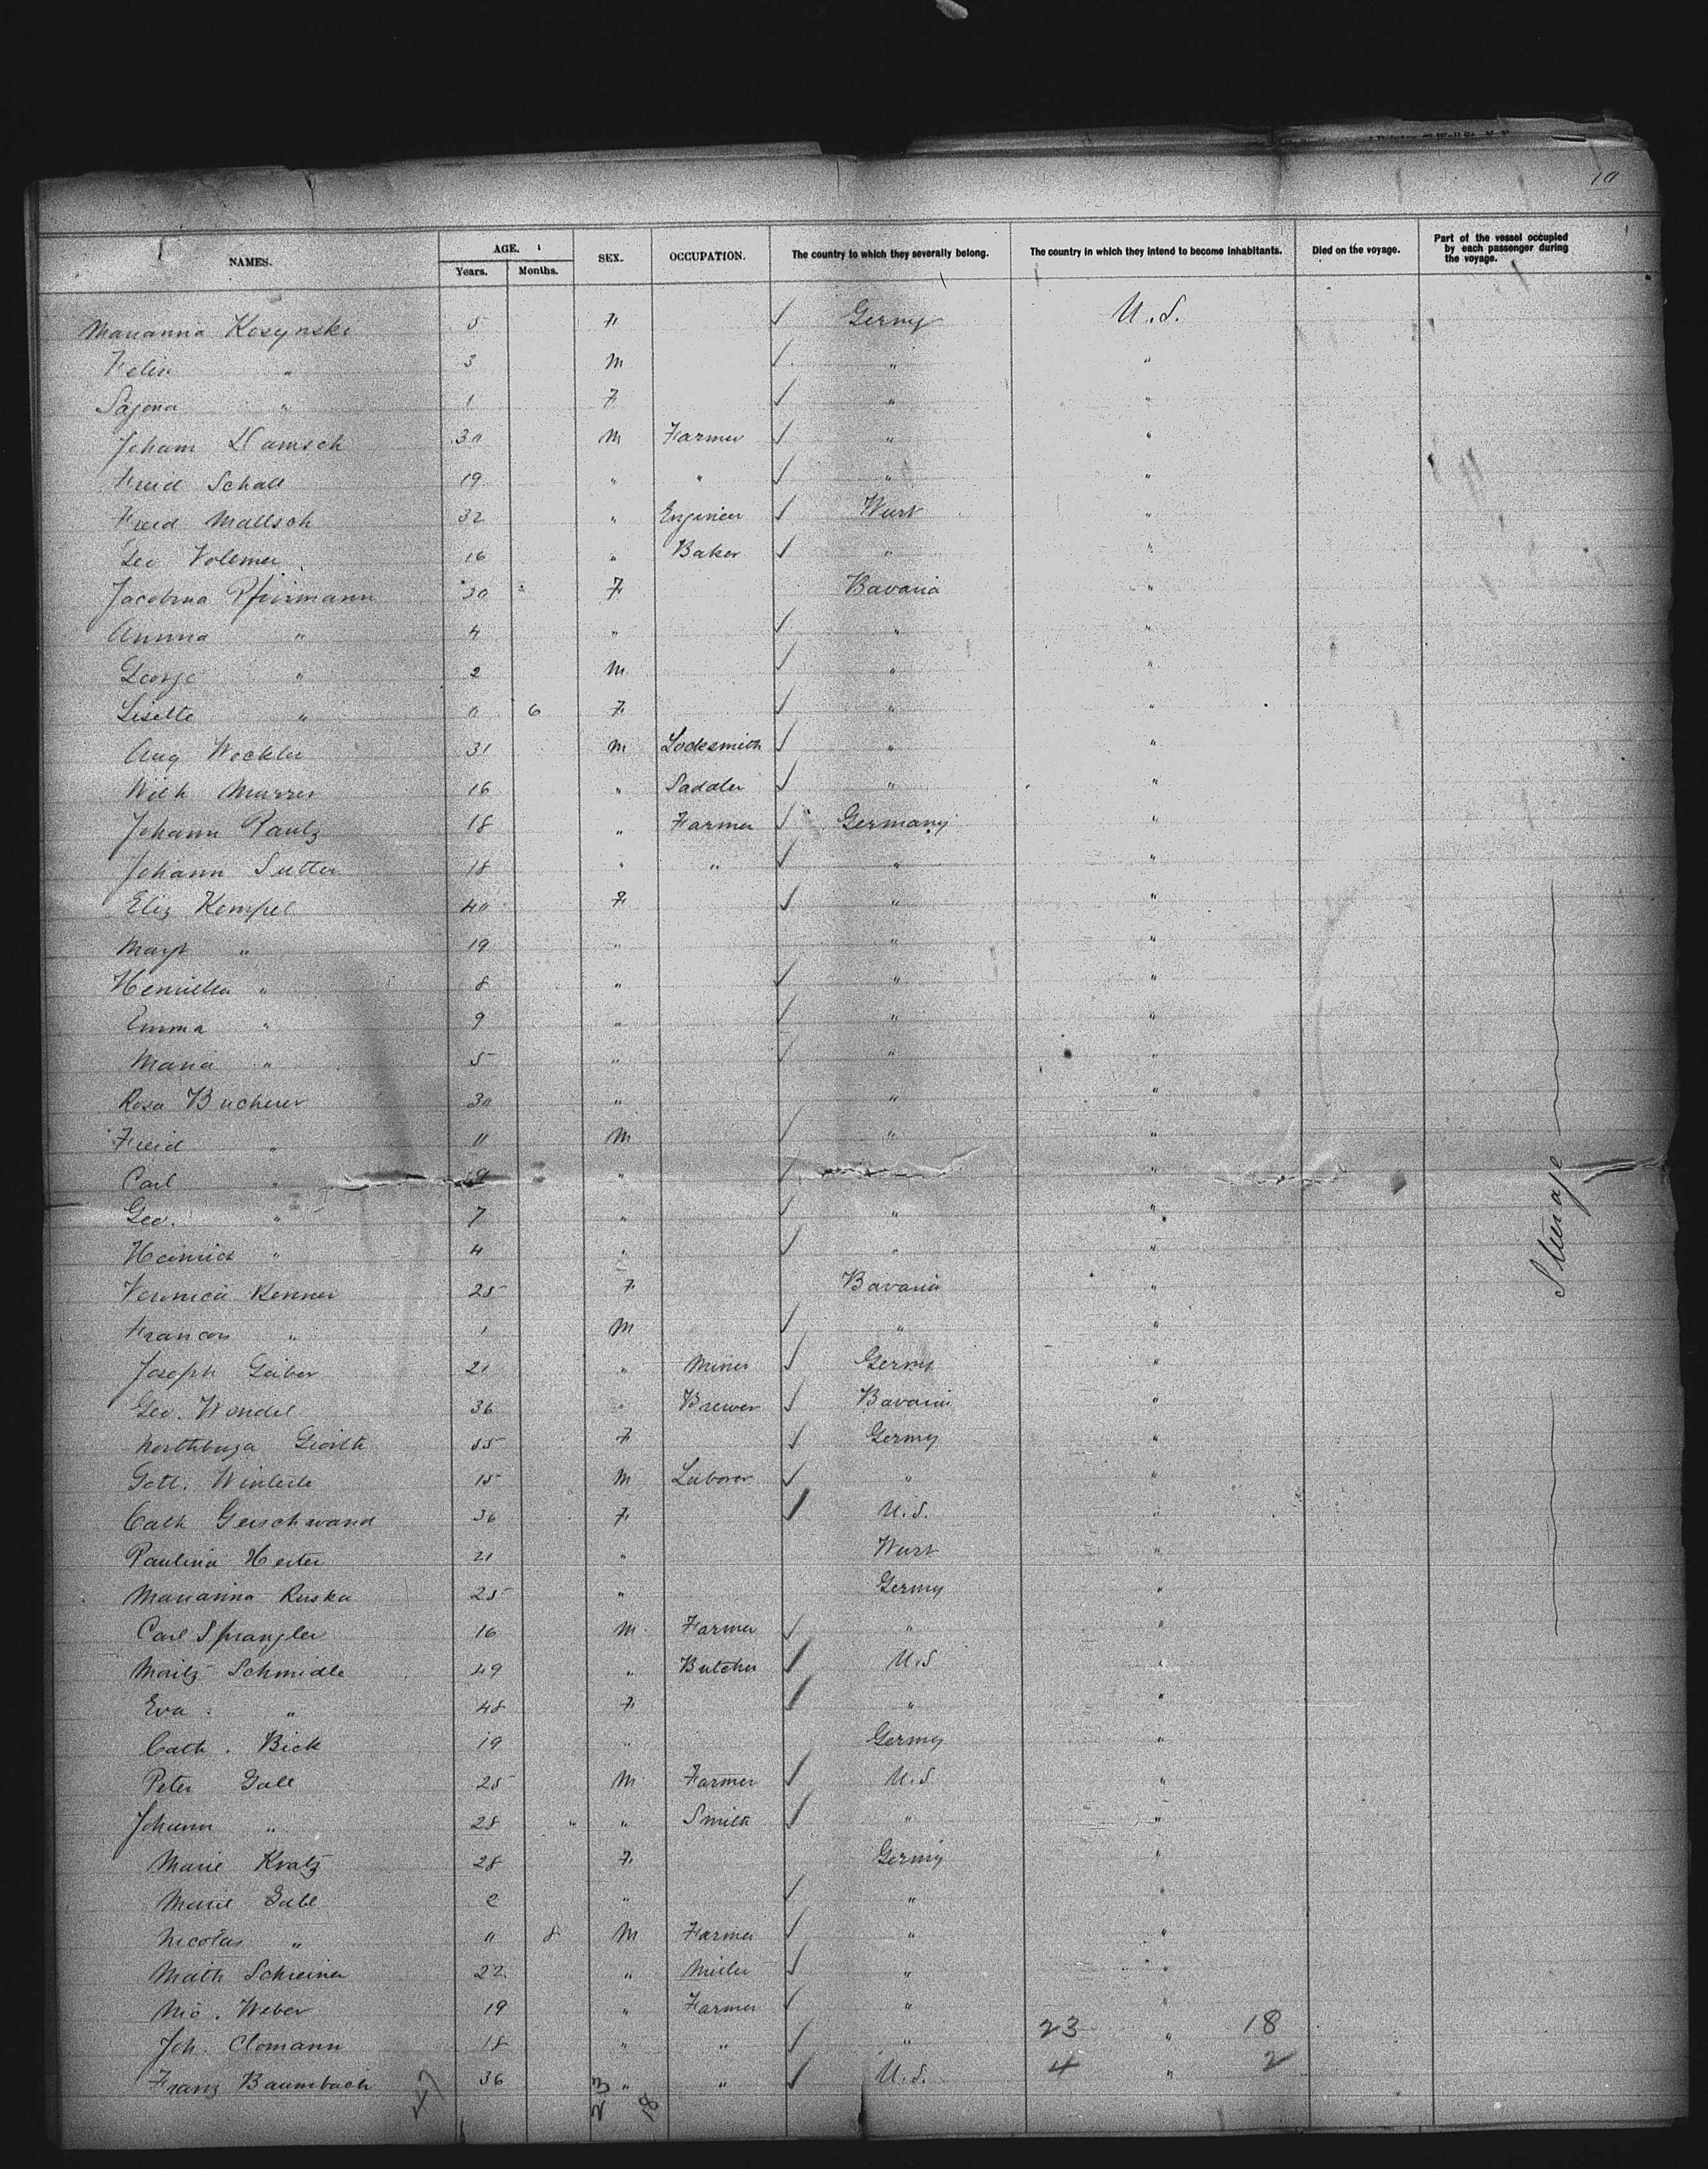 10
NAMES. AGE. Years. Months. SEX. OCCUPATION. The country to which they severally belong. The country in which they intend to become inhabitants. Died on the voyage. Part of the vessel occupied by each passenger during the voyage.
Marianna Kosynski 5 F Germy U.S.
Felix " 3 M " "
1 F " "
Johann 30 M Farmer " "
Fried Schall 19 " " " "
Fried Mallsch 32 " Engineer Wurt "
Leo Volemer 16 " Baker " "
Jacobina Pfirmann 30 F Bavaria "
Amma " 4 " " "
George " 2 M " "
Lisette " 0 6 F " "
Aug Weckler 31 M Locksmith " "
Wilh Murrer 16 " Saddler " "
Johann Pautz 18 " Farmer Germany "
Johann Sutter 18 " " " "
Eliz Kempel 40 F " "
Mary " 19 " " "
Henrietta " 8 " " "
Emma " 9 " " "
Maria " 5 " " "
Rosa Bucherer 30 " " "
Fried " 11 M " "
Carl " 9 " " "
Geo. " 7 " " "
Heinrich " 4 " " "
Veronica Renner 25 F Bavaria "
Francois " 1 M " "
Joseph Geiber 21 " Miner Germy "
Geo. Wendel 36 " Brewer Bavaria "
55 F Germy "
Gotl. Winterle 15 M Laborer " "
Cath Gerschwand 36 F U.S. "
Paulina Herter 21 " Wurt "
Marianna Ruska 25 " Germy "
Carl Sprangler 16 M. Farmer " "
Moritz Schmidle 49 " Butcher U.S "
Eva " 48 F " "
Cath. Bick 19 " Germy "
Peter Gall 25 M Farmer U.S "
Johann " 28 " " Smith " "
Marie Kratz 28 F Germy "
Marie Gall " " "
Nicolas " 0 8 M Farmer " "
Math Schreiner 22 " Miller " "
Nic. Weber 19 " Farmer " "
Joh. Clomann 18 " " " 23 " 18
Franz Baumbach 36 " " U.S. 4 " 2
47 23 18
Steerage